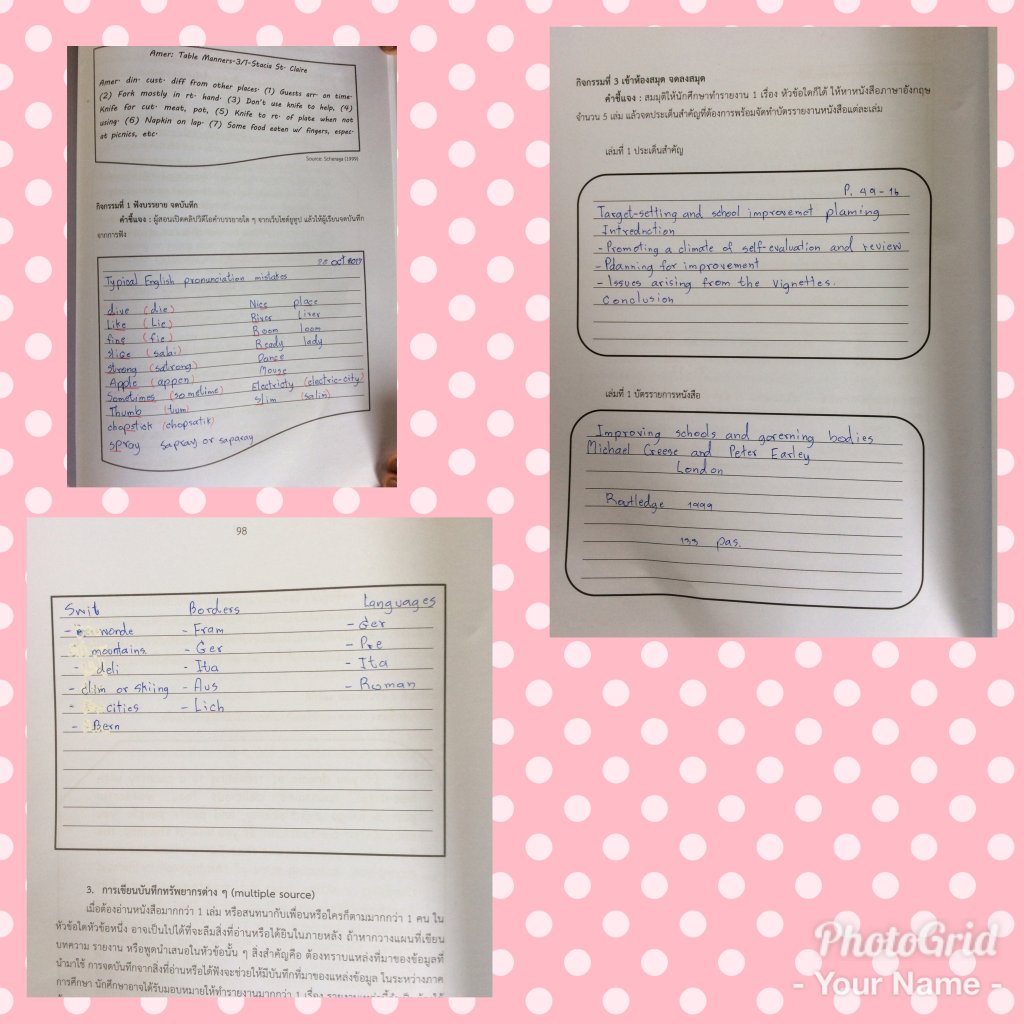 Amer: Table Manners-3/1-Stacia St. Claire
Amer. din. cust. diff from other places. (1) Guests arr. on time.
(2) Fork mostly in rt. hand. (3) Don't use knife to help, (4)
Knife for cut. meat, pot, (5) Knife to rt. of plate when not
using. (6) Napkin on lap. (7) Some food eaten w/ fingers, espec.
at picnics, etc.
Source: (1999)
กิจกรรมที่ 1 ฟังบรรยาย จดบันทึก
คำชี้แจง : ผู้สอนเปิดคลิปวิดีโอคำบรรยายใด ๆ จากเว็บไซต์ยูทูป แล้วให้ผู้เรียนจดบันทึก
จากการฟัง
Oct
Typical English pronunciation mistakes
dive (die) Nice place
Like (Lie) River Liver
fine (fie) Room loom
slice (salai) Ready lady
strong (satrong) Dance
Apple (appen) Mouse
Sometimes (sometime) Electricty (electric-city)
Thumb (tum) Slim (salim)
chopstick (chopsatik)
spray sapray or saparay
กิจกรรมที่ 3 เข้าห้องสมุด จดลงสมุด
คำชี้แจง : สมมุติให้นักศึกษาทำรายงาน 1 เรื่อง หัวข้อใดก็ได้ ให้หาหนังสือภาษาอังกฤษ
จำนวน 5 เล่ม แล้วจดประเด็นสำคัญที่ต้องการพร้อมจัดทำบัตรรายงานหนังสือแต่ละเล่ม
เล่มที่ 1 ประเด็นสำคัญ
P. 49-
Target-setting and school improvemet planing
Introduction
- Promoting a climate of self-evaluation and review
- Planning for improvement
- Issues arising from the vignettes.
Conclusion
เล่มที่ 1 บัตรรายการหนังสือ
Improving schools and governing bodies
Michael Creese and Peter Earley
London
Routledge 1999
133 pas.
98
Swit Borders Languages
- worde - Fram - Ger
mountains - Ger - Fre
- deli - Ita - Ita
- clim or skiing - Aus - Roman
- cities - Lich
- Bern
3. การเขียนบันทึกทรัพยากรต่าง ๆ (multiple source)
เมื่อต้องอ่านหนังสือมากกว่า 1 เล่ม หรือสนทนากับเพื่อนหรือใครก็ตามมากกว่า 1 คน ใน
หัวข้อใดหัวข้อหนึ่ง อาจเป็นไปได้ที่จะลืมสิ่งที่อ่านหรือได้ยินในภายหลัง ถ้าหากวางแผนที่เขียน
บทความ รายงาน หรือพูดนำเสนอในหัวข้อนั้น ๆ สิ่งสำคัญคือ ต้องทราบแหล่งที่มาของข้อมูลที่
นำมาใช้ การจดบันทึกจากสิ่งที่อ่านหรือได้ฟังจะช่วยให้มีบันทึกที่มาของแหล่งข้อมูล ในระหว่างภาค
การศึกษา นักศึกษาอาจได้รับมอบหมายให้ทำรายงานมากกว่า 1 เรื่อง
PhotoGrid
- Your Name -